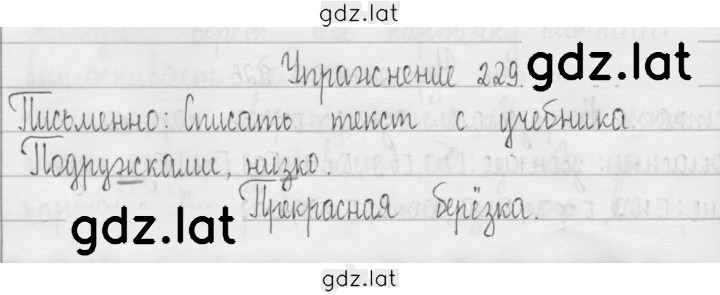 gdz.lat
Упражнение 229.
gdz.lat
Письменно: Списать текст с учебника.
Подружками, низко.
Прекрасная берёзка.
gdz.lat
gdz.lat